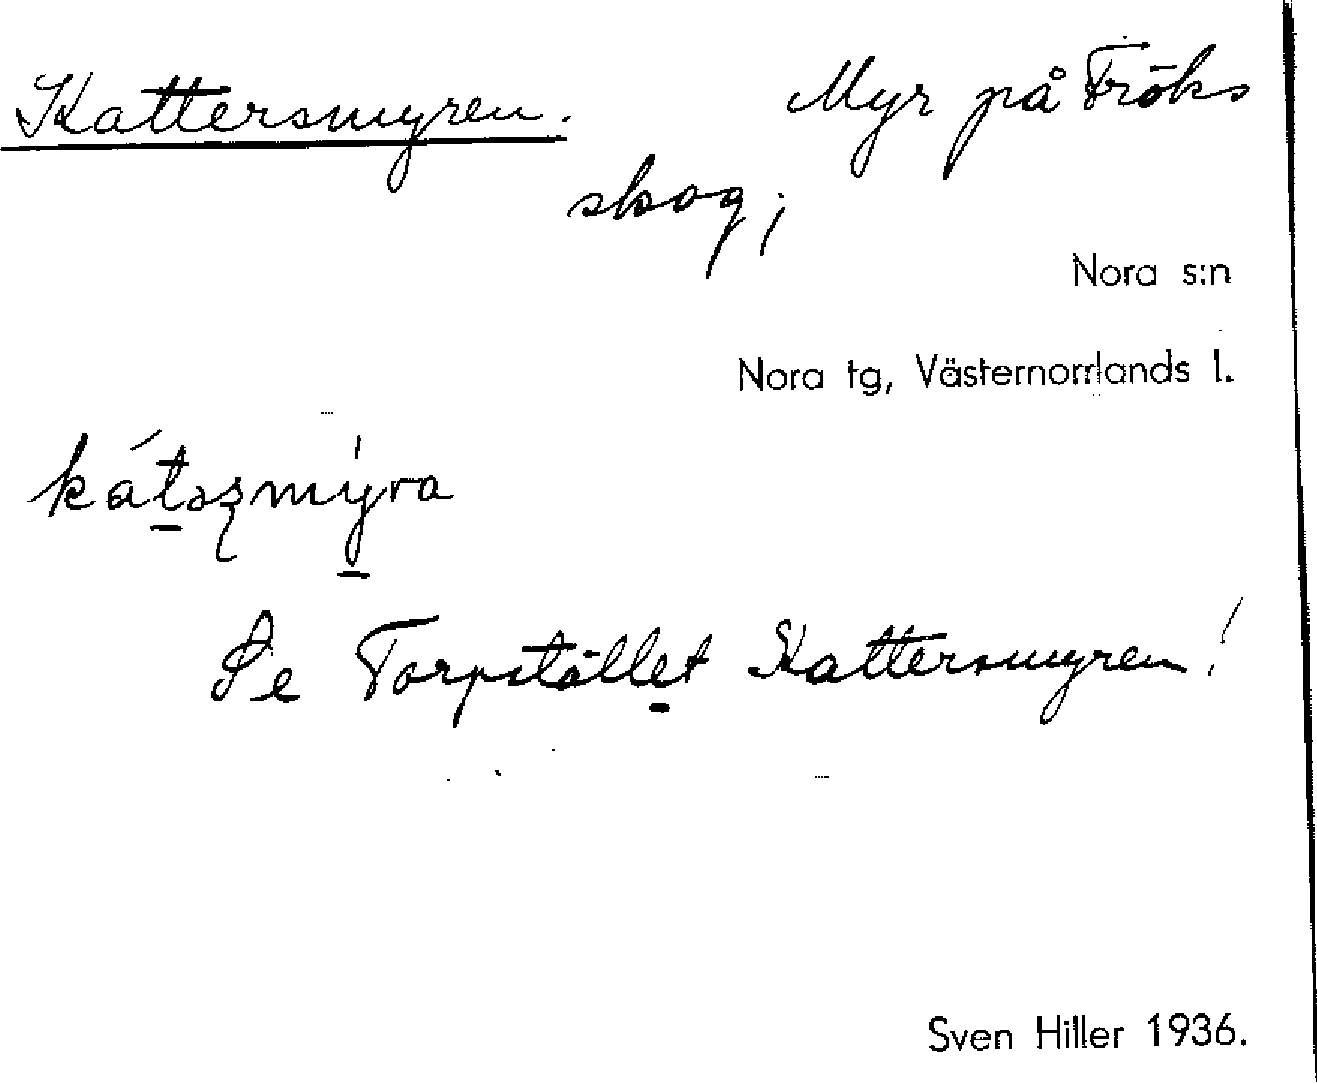 Kattersmyren. Myr på Fröks
skog;
Nora s:n
Nora tg, Västernorrlands l.
Se Torpstället Kattersmyren!
Sven Hiller 1936.